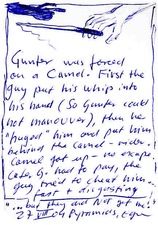 Gunter was forced
on a Camel. First the
guy put his whip into
his hand (so Gunter could
not maneuver), then he
"huged" him and put him
behind the Camel-rider.
Camel got up - no escape.
Later G. had to pay, the
guy tried to cheat him..
fast & disgusting
"...but they did not get me!"
27 Pyramids,